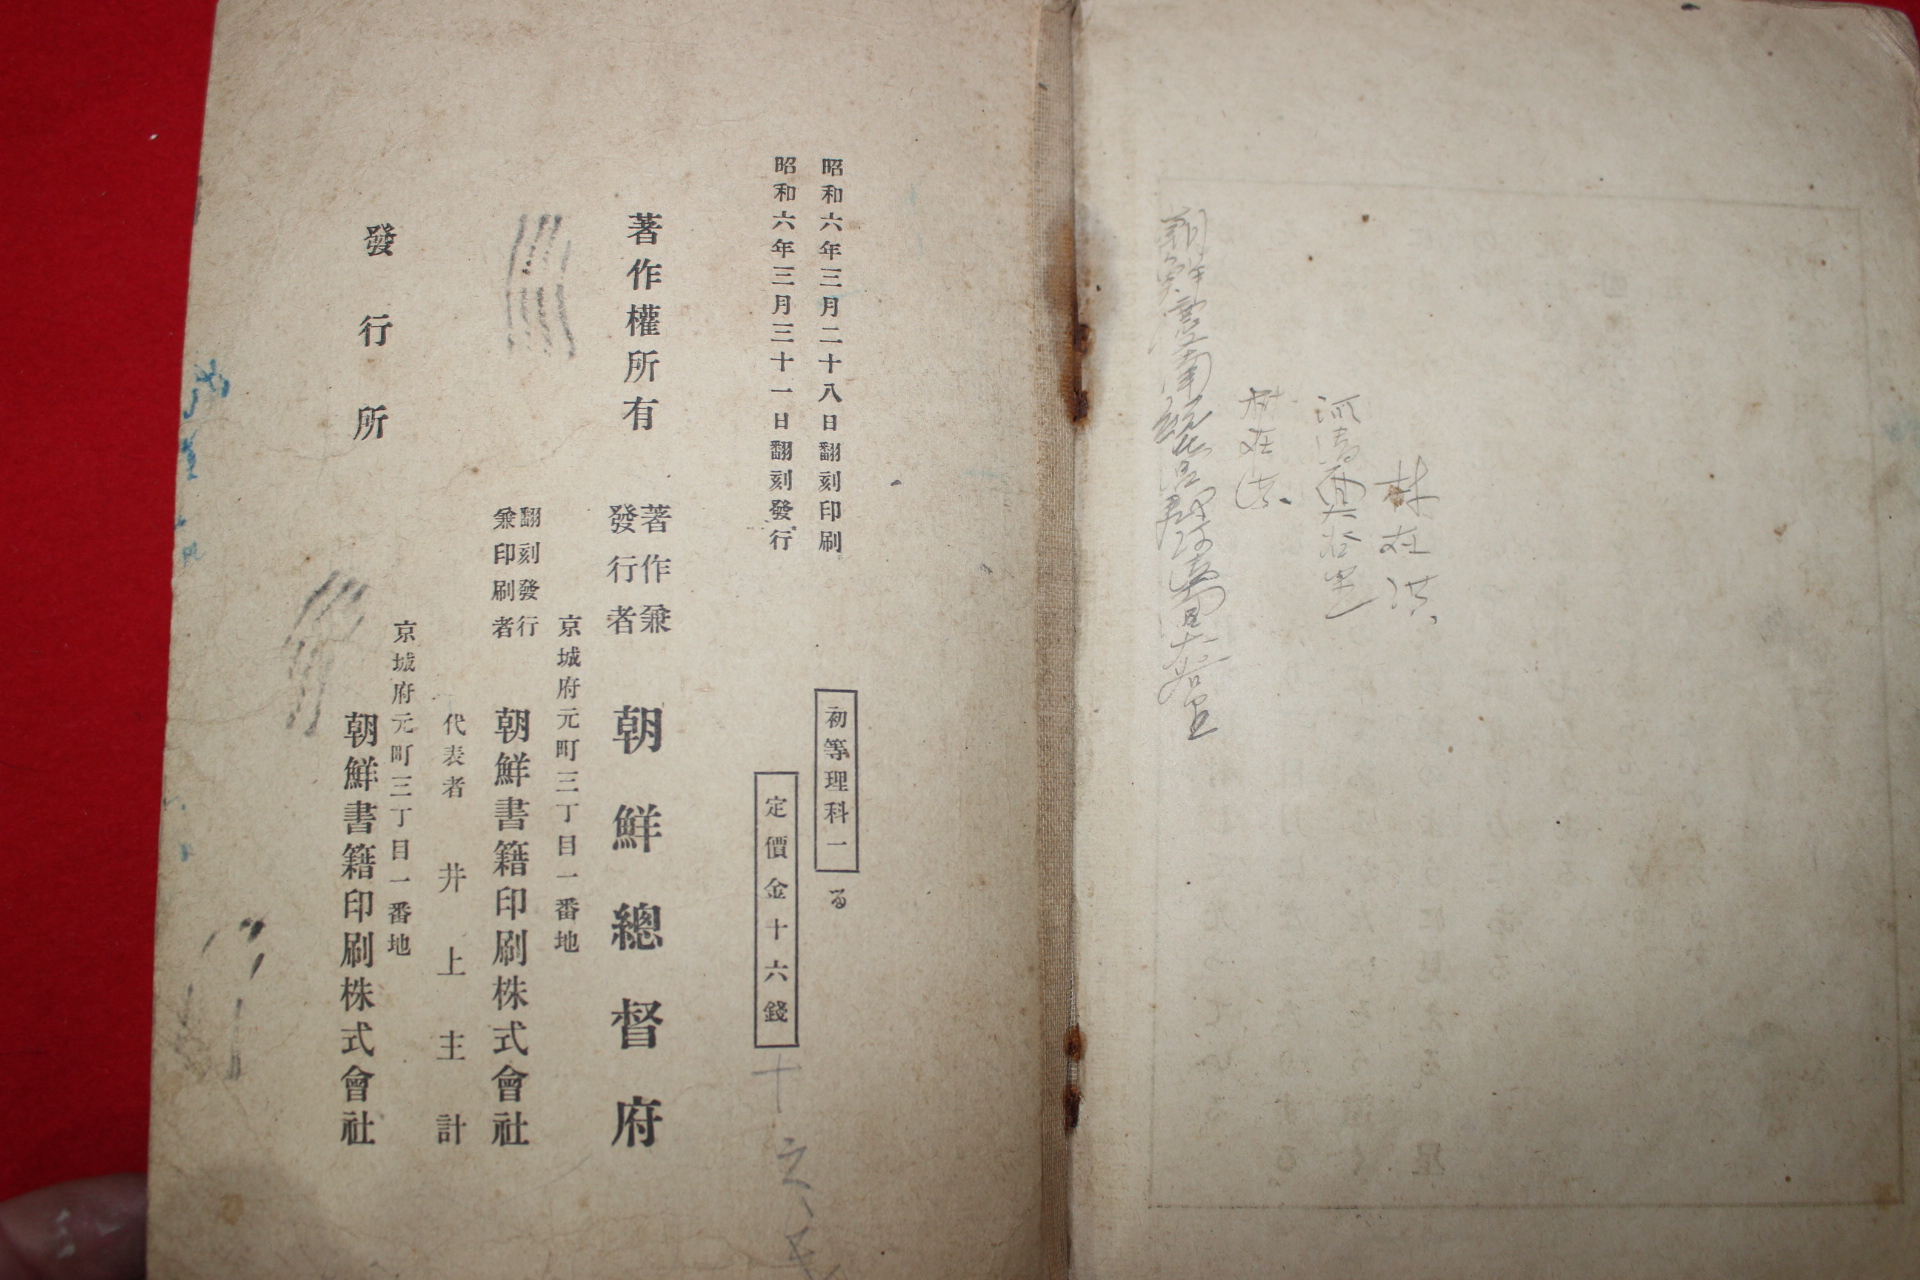 林在洪
昭和六年三月二十八日翻刻印刷
昭和六年三月三十一日翻刻發行
初等理科一
る
定價金十六錢
十六
著作權所有
著作兼
發行者
朝鮮總督府
京城府元町三丁目一番地
翻刻發行
兼印刷者
朝鮮書籍印刷株式會社
代表者 井上主計
京城府元町三丁目一番地
發行所
朝鮮書籍印刷株式會社